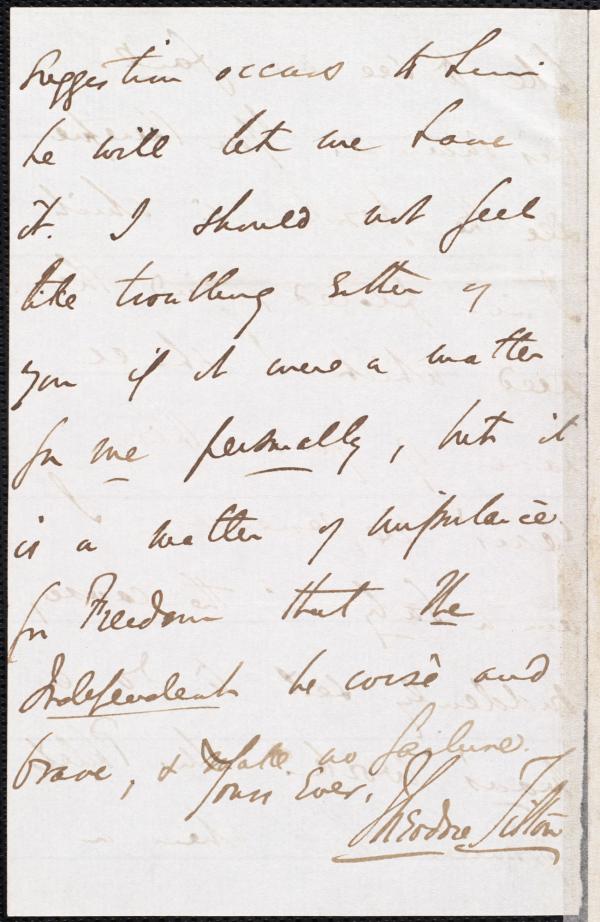 suggestion occurs to him
he will let me have
it. I should not feel
like troubling either of
you if it were a matter
for me personally, but it
is a matter of importance
for Freedom that The
Independent be wise and
brave, & make no failure.
Yours Ever,
Theodore Tilton